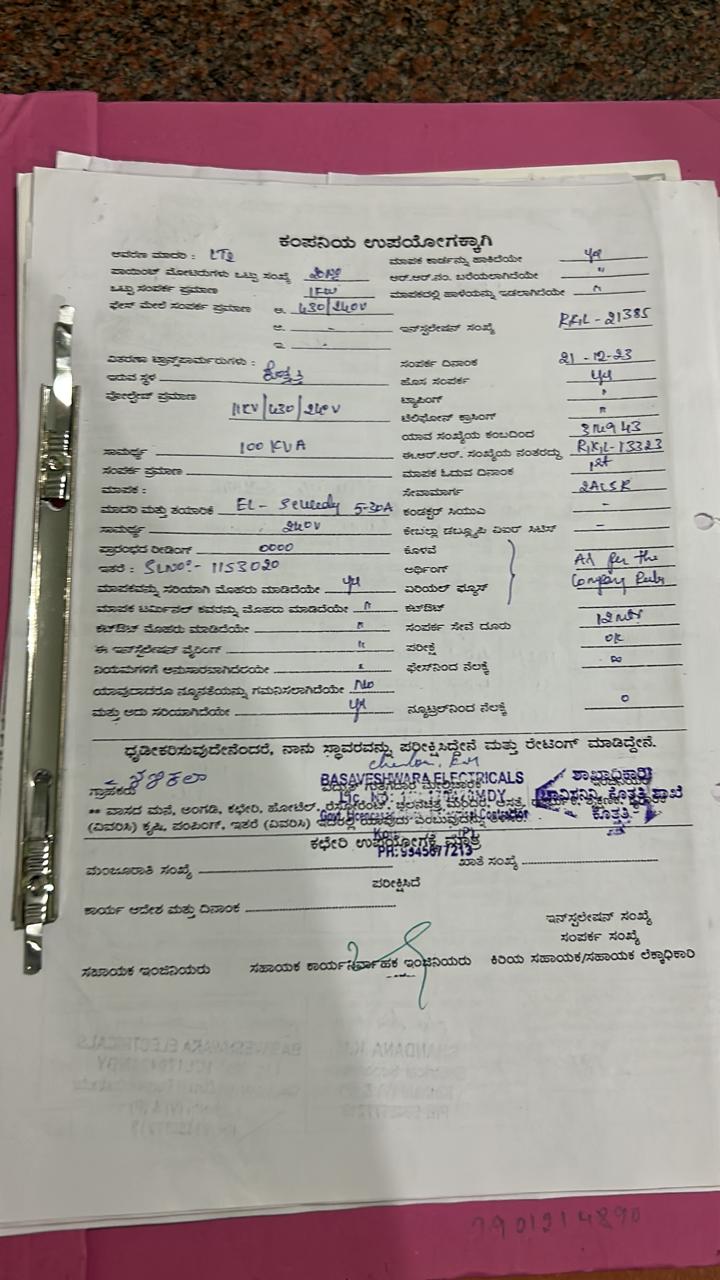 ಕಂಪನಿಯ ಉಪಯೋಗಕ್ಕಾಗಿ
ಆವರಣ ಮಾದರಿ : LT2 ಮಾಪಕ ಕಾರ್ಡನ್ನು ಹಾಕಿದೆಯೇ
ಪಾಯಿಂಟ್ ಮೋಟರುಗಳು ಒಟ್ಟು ಸಂಖ್ಯೆ ಆರ್.ಆರ್.ನಂ. ಬರೆಯಲಾಗಿದೆಯೇ "
ಒಟ್ಟು ಸಂಪರ್ಕ ಪ್ರಮಾಣ 1KW ಮಾಪಕದಲ್ಲಿ ಹಾಳೆಯನ್ನು ಇಡಲಾಗಿದೆಯೇ "
ಫೇಸ್ ಮೇಲೆ ಸಂಪರ್ಕ ಪ್ರಮಾಣ ಅ. 430/240V
ಆ. - ಇನ್‌ಸ್ಟಲೇಷನ್ ಸಂಖ್ಯೆ RKIL - 21385
ಇ. -
ವಿತರಣಾ ಟ್ರಾನ್ಸ್‌ಫಾರ್ಮರುಗಳು : ಸಂಪರ್ಕ ದಿನಾಂಕ 21 - 12 - 23
ಇರುವ ಸ್ಥಳ ಕೊತ್ತತ್ತಿ ಹೊಸ ಸಂಪರ್ಕ
ವೋಲ್ಟೇಜ್ ಪ್ರಮಾಣ ಟ್ಯಾಪಿಂಗ್ "
11KV/430/240V ಟೆಲಿಫೋನ್ ಕ್ರಾಸಿಂಗ್ "
ಯಾವ ಸಂಖ್ಯೆಯ ಕಂಬದಿಂದ
ಸಾಮರ್ಥ್ಯ 100 KVA ಈ.ಆರ್.ಆರ್. ಸಂಖ್ಯೆಯ ನಂತರದ್ದು RKIL - 13323
ಸಂಪರ್ಕ ಪ್ರಮಾಣ ಮಾಪಕ ಓದುವ ದಿನಾಂಕ 1st
ಮಾಪಕ : ಸೇವಾಮಾರ್ಗ 2ACSR
ಮಾದರಿ ಮತ್ತು ತಯಾರಿಕೆ 5-30A ಕಂಡಕ್ಟರ್ ಸಿಯುಎ -
ಸಾಮರ್ಥ್ಯ 240V ಕೇಬಲ್ಲು ಡಬ್ಲ್ಯೂಪಿ ವಿಐರ್ ಸಿಟಿಸ್ -
ಪ್ರಾರಂಭದ ರೀಡಿಂಗ್ 0000 ಕೊಳವೆ
ಇತರೆ : SLNO:- 1153020 ಅರ್ಥಿಂಗ್ As per the
ಮಾಪಕವನ್ನು ಸರಿಯಾಗಿ ಮೊಹರು ಮಾಡಿದೆಯೇ ಏರಿಯಲ್ ಫ್ಯೂಸ್ Company Rules
ಮಾಪಕ ಟರ್ಮಿನಲ್ ಕವರನ್ನು ಮೊಹರು ಮಾಡಿದೆಯೇ " ಕಟ್‌ಔಟ್
ಕಟ್‌ಔಟ್ ಮೊಹರು ಮಾಡಿದೆಯೇ " ಸಂಪರ್ಕ ಸೇವೆ ದೂರು
ಈ ಇನ್‌ಸ್ಟಲೇಷನ್ ವೈರಿಂಗ್ " ಪರೀಕ್ಷೆ OK
ನಿಯಮಗಳಿಗೆ ಅನುಸಾರವಾಗಿದೆಯೇ " ಫೇಸ್‌ನಿಂದ ನೆಲಕ್ಕೆ ∞
ಯಾವುದಾದರೂ ನ್ಯೂನತೆಯನ್ನು ಗಮನಿಸಲಾಗಿದೆಯೇ No
ಮತ್ತು ಅದು ಸರಿಯಾಗಿದೆಯೇ ನ್ಯೂಟ್ರಲ್‌ನಿಂದ ನೆಲಕ್ಕೆ 0
ಧೃಡೀಕರಿಸುವುದೇನೆಂದರೆ, ನಾನು ಸ್ಥಾವರವನ್ನು ಪರೀಕ್ಷಿಸಿದ್ದೇನೆ ಮತ್ತು ರೇಟಿಂಗ್ ಮಾಡಿದ್ದೇನೆ.
ಶಶಿಕಲಾ
ಗ್ರಾಹಕರು
BASAVESHWARA ELECTRICALS
ಶಾಖಾಧಿಕಾರಿ
ಕೊತ್ತತ್ತಿ ಶಾಖೆ
ಕೊತ್ತತ್ತಿ.
** ವಾಸದ ಮನೆ, ಅಂಗಡಿ, ಕಛೇರಿ, ಹೋಟೆಲ್,
(ವಿವರಿಸಿ) ಕೃಷಿ, ಪಂಪಿಂಗ್, ಇತರೆ (ವಿವರಿಸಿ)
ಕಛೇರಿ ಉಪಯೋಗಕ್ಕೆ ಮಾತ್ರ
PH:9945677213
ಮಂಜೂರಾತಿ ಸಂಖ್ಯೆ ಖಾತೆ ಸಂಖ್ಯೆ
ಪರೀಕ್ಷಿಸಿದೆ
ಕಾರ್ಯ ಆದೇಶ ಮತ್ತು ದಿನಾಂಕ
ಇನ್‌ಸ್ಟಲೇಷನ್ ಸಂಖ್ಯೆ
ಸಂಪರ್ಕ ಸಂಖ್ಯೆ
ಸಹಾಯಕ ಇಂಜಿನಿಯರು ಸಹಾಯಕ ಕಾರ್ಯನಿರ್ವಾಹಕ ಇಂಜಿನಿಯರು ಕಿರಿಯ ಸಹಾಯಕ/ಸಹಾಯಕ ಲೆಕ್ಕಾಧಿಕಾರಿ
7901214890